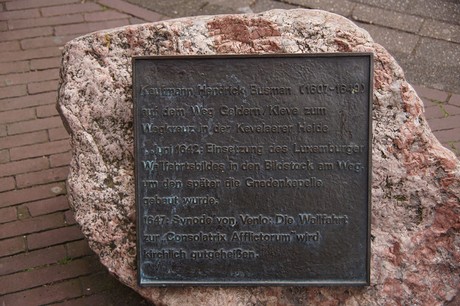 Kaufmann Hendrick Busman (1607-1649)
auf dem Weg Geldern/Kleve zum
Wegkreuz in der Kevelaerer Heide
1. Juni 1642: Einsetzung des Luxemburger
Wallfahrtsbildes in den Bildstock am Weg-
um den später die Gnadenkapelle
gebaut wurde.
1647: Synode von Venlo: Die Wallfahrt
zur „Consolatrix Afflictorum" wird
kirchlich gutgeheißen.